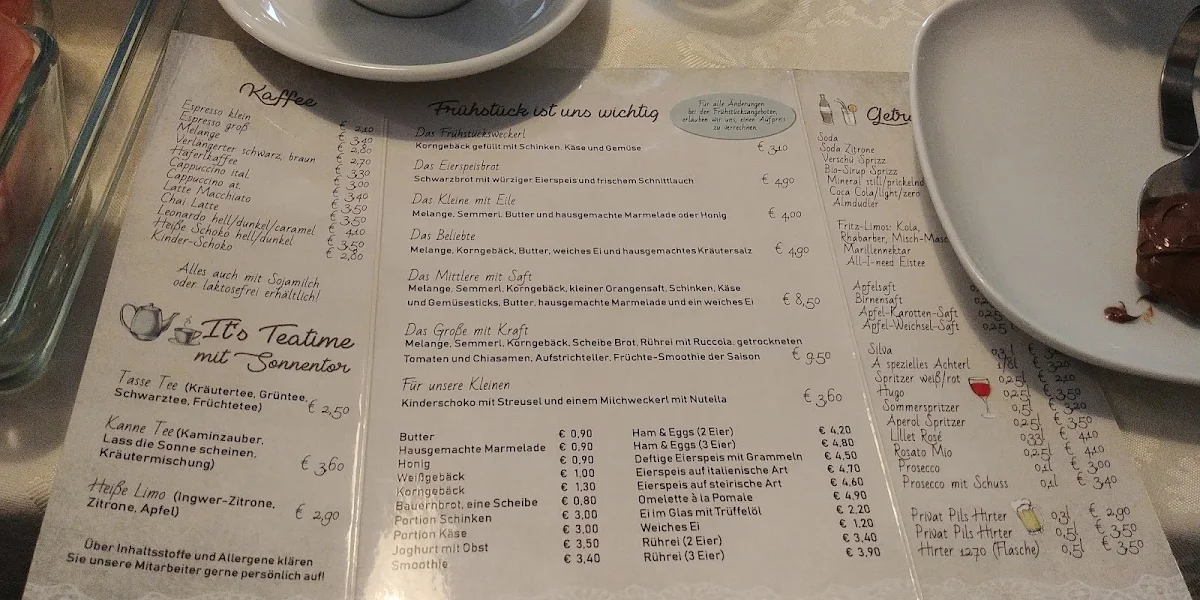 Kaffee
Espresso klein € 2,10
Espresso groß € 3,40
Melange € 2,80
Verlängerter schwarz, braun € 2,70
Häferlkaffee € 3,30
Cappuccino ital € 3,00
Cappuccino at € 3,40
Latte Macchiato € 3,50
Chai Latte € 3,50
Leonardo hell/dunkel/caramel € 4,10
Heiße Schoko hell/dunkel € 3,50
Kinder-Schoko € 2,80
Alles auch mit Sojamilch
oder laktosefrei erhältlich!
It's Teatime
mit Sonnentor
Tasse Tee (Kräutertee, Grüntee,
Schwarztee, Früchtetee) € 2,50
Kanne Tee (Kaminzauber,
Lass die Sonne scheinen,
Kräutermischung) € 3,60
Heiße Limo (Ingwer-Zitrone,
Zitrone, Apfel) € 2,90
Über Inhaltsstoffe und Allergene klären
Sie unsere Mitarbeiter gerne persönlich auf!
Frühstück ist uns wichtig
Für alle Änderungen
bei den Frühstücksangeboten,
erlauben wir uns, einen Aufpreis
zu verrechnen.
Das Frühstücksweckerl
Korngebäck gefüllt mit Schinken, Käse und Gemüse € 3,10
Das Eierspeisbrot
Schwarzbrot mit würziger Eierspeis und frischem Schnittlauch € 4,90
Das Kleine mit Eile
Melange, Semmerl, Butter und hausgemachte Marmelade oder Honig € 4,00
Das Beliebte
Melange, Korngebäck, Butter, weiches Ei und hausgemachtes Kräutersalz € 4,90
Das Mittlere mit Saft
Melange, Semmerl, Korngebäck, kleiner Orangensaft, Schinken, Käse
und Gemüsesticks, Butter, hausgemachte Marmelade und ein weiches Ei € 8,50
Das Große mit Kraft
Melange, Semmerl, Korngebäck, Scheibe Brot, Rührei mit Ruccola, getrockneten
Tomaten und Chiasamen, Aufstrichteller, Früchte-Smoothie der Saison € 9,50
Für unsere Kleinen
Kinderschoko mit Streusel und einem Milchweckerl mit Nutella € 3,60
Butter € 0,90
Hausgemachte Marmelade € 0,90
Honig € 0,90
Weißgebäck € 1,00
Korngebäck € 1,30
Bauernbrot, eine Scheibe € 0,80
Portion Schinken € 3,00
Portion Käse € 3,00
Joghurt mit Obst € 3,50
Smoothie € 3,40
Ham & Eggs (2 Eier) € 4,20
Ham & Eggs (3 Eier) € 4,80
Deftige Eierspeis mit Grammeln € 4,50
Eierspeis auf italienische Art € 4,70
Eierspeis auf steirische Art € 4,60
Omelette à la Pomale € 4,90
Ei im Glas mit Trüffelöl € 2,20
Weiches Ei € 1,20
Rührei (2 Eier) € 3,40
Rührei (3 Eier) € 3,90
Getr
Soda
Soda Zitrone
Verschü Sprizz
Bio-Sirup Sprizz
Mineral still/prickelnd
Coca Cola/light/zero
Almdudler
Fritz-Limos: Kola,
Rhabarber, Misch-Masc
Marillennektar
All-I-need Eistee
Apfelsaft
Birnensaft 0,25
Apfel-Karotten-Saft 0,25
Apfel-Weichsel-Saft 0,25
Silva 0,3l
A spezielles Achterl 1/8l € 3,20
Spritzer weiß/rot 0,25l € 2,10
Hugo 0,25l € 3,50
Sommerspritzer 0,5l € 3,20
Aperol Spritzer 0,25l € 3,50
Lillet Rosé 0,33l € 4,10
Rosato Mio 0,25l € 4,10
Prosecco 0,1l € 3,00
Prosecco mit Schuss 0,1l € 3,40
Privat Pils Hirter 0,3l € 2,90
Privat Pils Hirter 0,5l € 3,50
Hirter 1270 (Flasche) 0,5l € 3,50